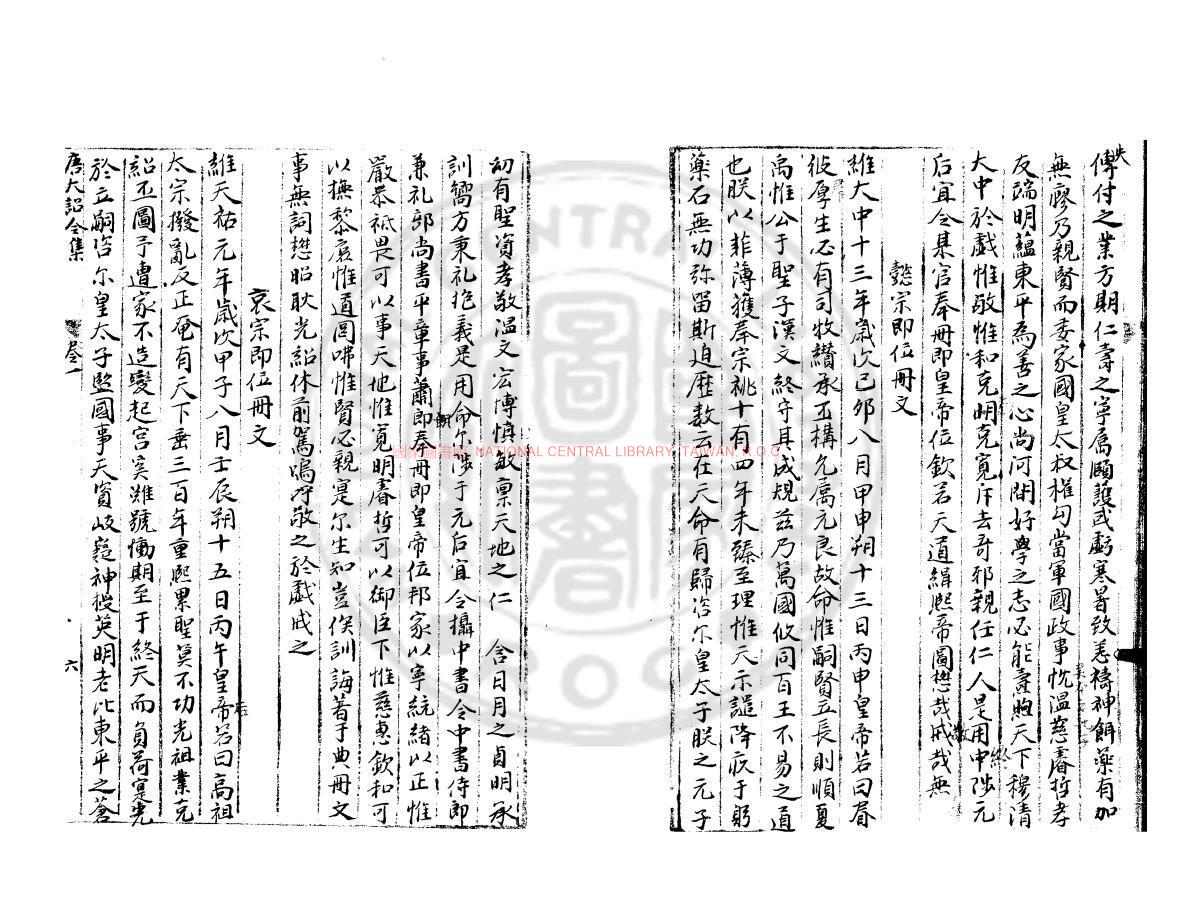 傳付之業方期仁壽之寧屬頤護或虧寒暑致恙禱神餌藥有加
無廖乃親賢而委家國皇太叔權句當軍國政事忱温慈睿哲孝
友端明藴東平為善之心尚河間好學之志必能壽煦天下穆清
大中於戲惟敬惟和克明克寬斥去奇邪親任仁人是用中陟元
后宜令某官奉冊即皇帝位欽若天道緝熙帝圖懋哉戒哉無
懿宗即位冊文
維大中十三年歲次己卯八月甲申朔十三日丙申皇帝若曰眉
彼厚生必有司牧纘承丕構允屬元良故命惟嗣賢立長則順夏
禹惟公于聖子漢文終守其成規茲乃萬國攸同百王不易之道
也朕以菲薄獲奉宗祧十有四年未臻至理惟天示譴降疾于躬
藥石無功弥留斯迫歷数云在天命有歸咨尔皇太子朕之元子
初有聖資孝敬温文宏博慎敏禀天地之仁 含日月之貞明承
訓嚮方秉礼抱義是用命尓陟于元后宜令攝中書令中書侍郎
兼礼部尚書平章事蕭鄴奉冊即皇帝位邦家以寧統緒以正惟
嚴恭祗畏可以事天地惟寛明睿哲可以御臣下惟慈惠欽和可
以撫黎庶惟道罔咈惟賢必親寔尔生知豈俟訓誨著于典冊文
事無詞懋昭耿光紹休前駕嗚呼敬之於戲戒之
哀宗即位冊文
維天祐元年歲次甲子八月壬辰朔十五日丙午皇帝若曰高祖
太宗撥亂反正奄有天下垂三百年重熙累聖莫不功光祖業克
紹丕圖予遭家不造變起宮寔雖號慟期至于終天而負荷寔先
於立嗣咨尔皇太子監國事天資岐嶷神授英明老比東平之蒼
唐大詔令集 卷一 六
國家圖書館 NATIONAL CENTRAL LIBRARY, TAIWAN, R.O.C.